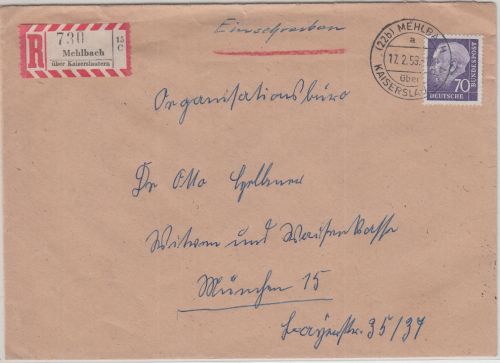 R
730
15
C
Mehlbach
über Kaiserslautern
Einschreiben
(22b) MEHLBA
a
17.2.58
über
KAISERSLAU
70
DEUTSCHE
BUNDESPOST
Organisationsbüro
Dr Otto
Witwen und Waisenkasse
München 15
35/37